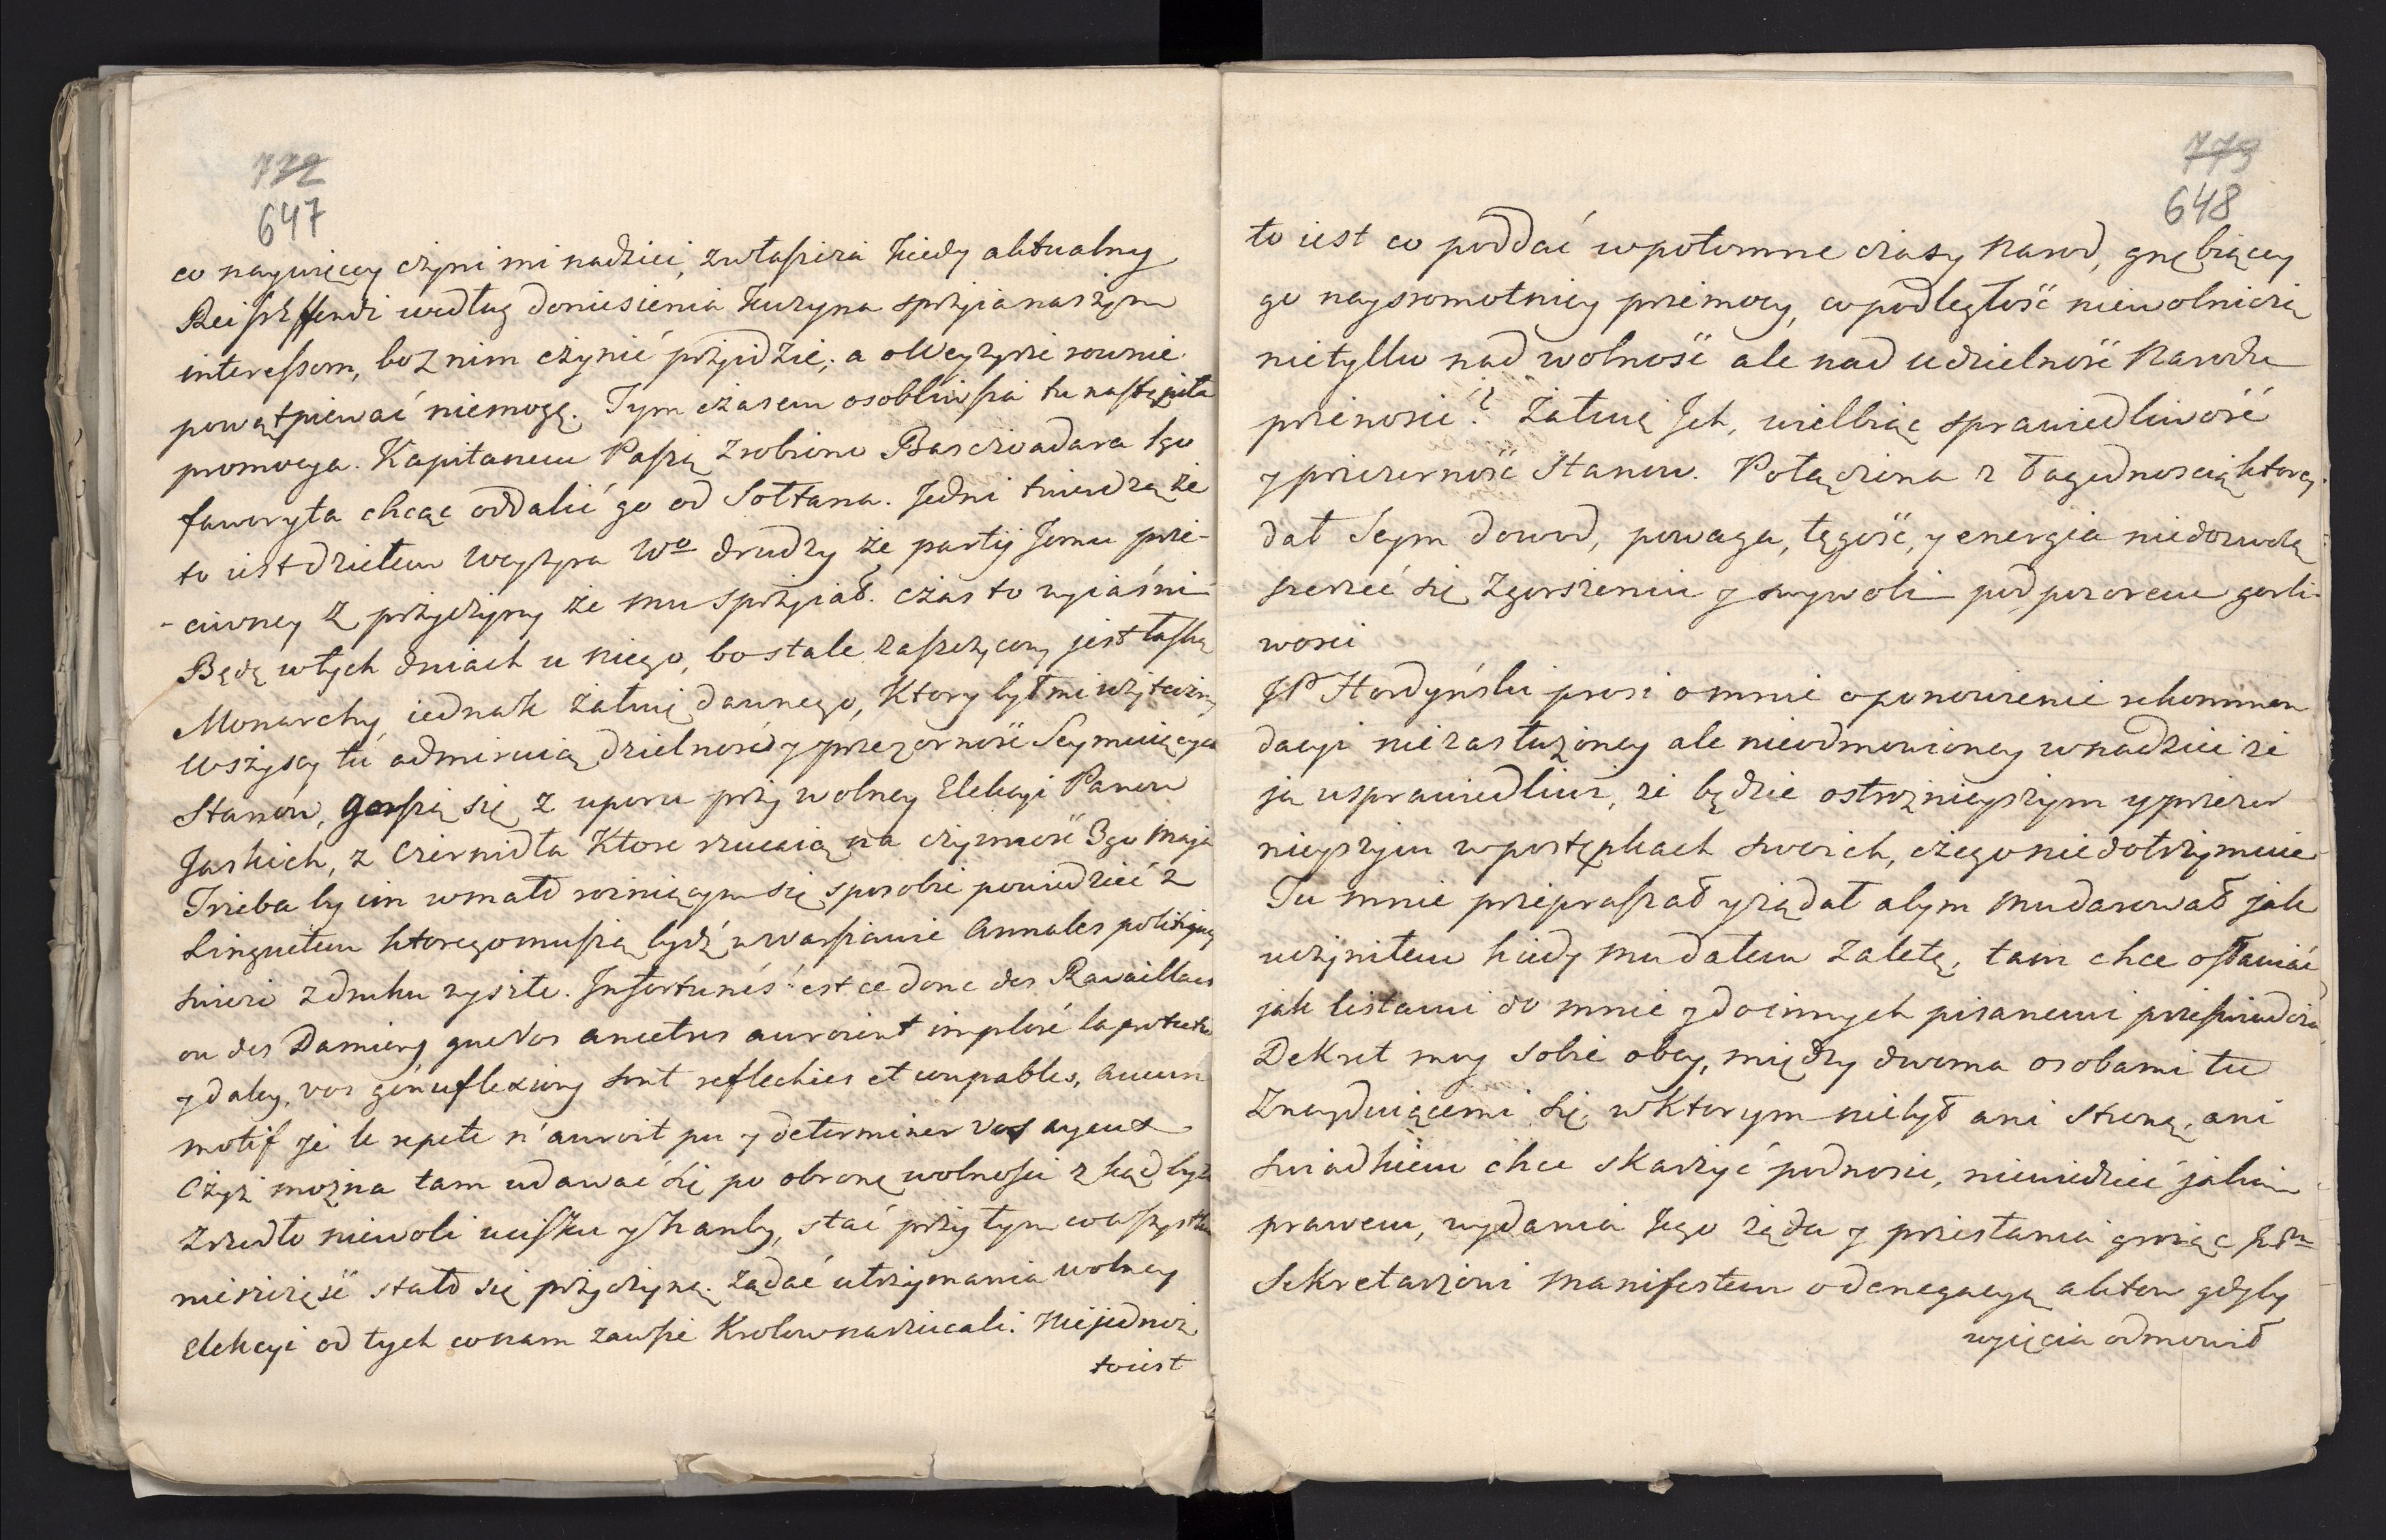 772
647
co naywięcey czyni mi nadziei, zwłaszcza kiedy aktualny
Reis Effendi według doniesienia Kuzyna sprzyia naszym
interessom, bo z nim czynić przyidzie; a o Wezyrze rownie
powątpiewać niemogę. Tym czasem osobliwsza tu nastąpiła
promocya. Kapitanem Paszą zrobiono Baszczoadara 1go
faworyta chcąc oddalić go od Sołtana. Jedni twierdzą że
to iest dziełem Wezyra Wo drudzy że partij Jemu prze-
-ciwney z przyczyny że mu sprzyiał. czas to wyiaśni
Będę w tych dniach u niego, bo stale zaszczycony jest łaską
Monarchy, iednak żałuię dawnego, Ktory był mi użyteczny
Wszyscy tu admiruią dzielność y przezorność Seymuiących
Stanow, gorszą się z uporu przy wolney Elekcyi Panow
Jaskich, z Czernidła Ktore rzucaią na czynność 3go Maja
Trzeba by im w mało rożniącym się sposobie powiedzieć z
Linguetem ktorego muszą bydź w Warszawie Annales polityczne
swieżo z druku wyszłe. Infortunés! est ce donc des Ravaillacs
ou des Damiens que vos ancetres auroient imploré la protection
y daley, vos génuflexions sont reflechies et coupables, aucun
motif je le repete n'auroit pu y determiner vos ayeux
Czyż można tam udawać się po obronę wolności z kąd było
zrzodło niewoli ucisku y hanby, stać przy tym co wszystkich
nieszczęść stało się przyczyną. żądać utrzymania wolney
Elekcyi od tych co nam zawsze Krolow narzucali. Niejednoż
to iest
773
648
to iest co poddać w potomne czasy Narod, gnębiącey
go naysromotniey przemocy, co podległość niewolniczą
nietylko nad wolność ale nad udzielność Narodu
przenosić? Żałuię Ich, wielbiąc sprawiedliwość
y przezorność Stanow. Połączona z łagodnością ktorey
dał Seym dowod, powaga, tęgość, y energia niedozwolą
szerzeć się zgorszeniu y swywoli pod pozorem gorli-
wosci
JP Hordyński prosi o mnie o ponowienie rekommen
dacyi niezasłużoney ale nieodmowioney w nadziei że
ją usprawiedliwi, że będzie ostrożnieyszym y przezor
nieyszym w postępkach swoich, czego niedotrzymuie
Tu mnie przepraszał y żądał abym mu darował jak
uczyniłem kiedy mu dałem zaletę, tam chce osławiać
jak listami do mnie y do innych pisanemi przeświadcza
Dekret mey sobie obcy, między dwoma osobami tu
Znayduiącemi się, w Ktorym niebył ani stroną, ani
swiadkiem chce skarżyć podnosić, niewiedzieć jakim
prawem, wydania Jego żąda y przesłania grożąc
Sekretarzowi Manifestem o denegacyą aktow gdyby
wyięcia odmowił